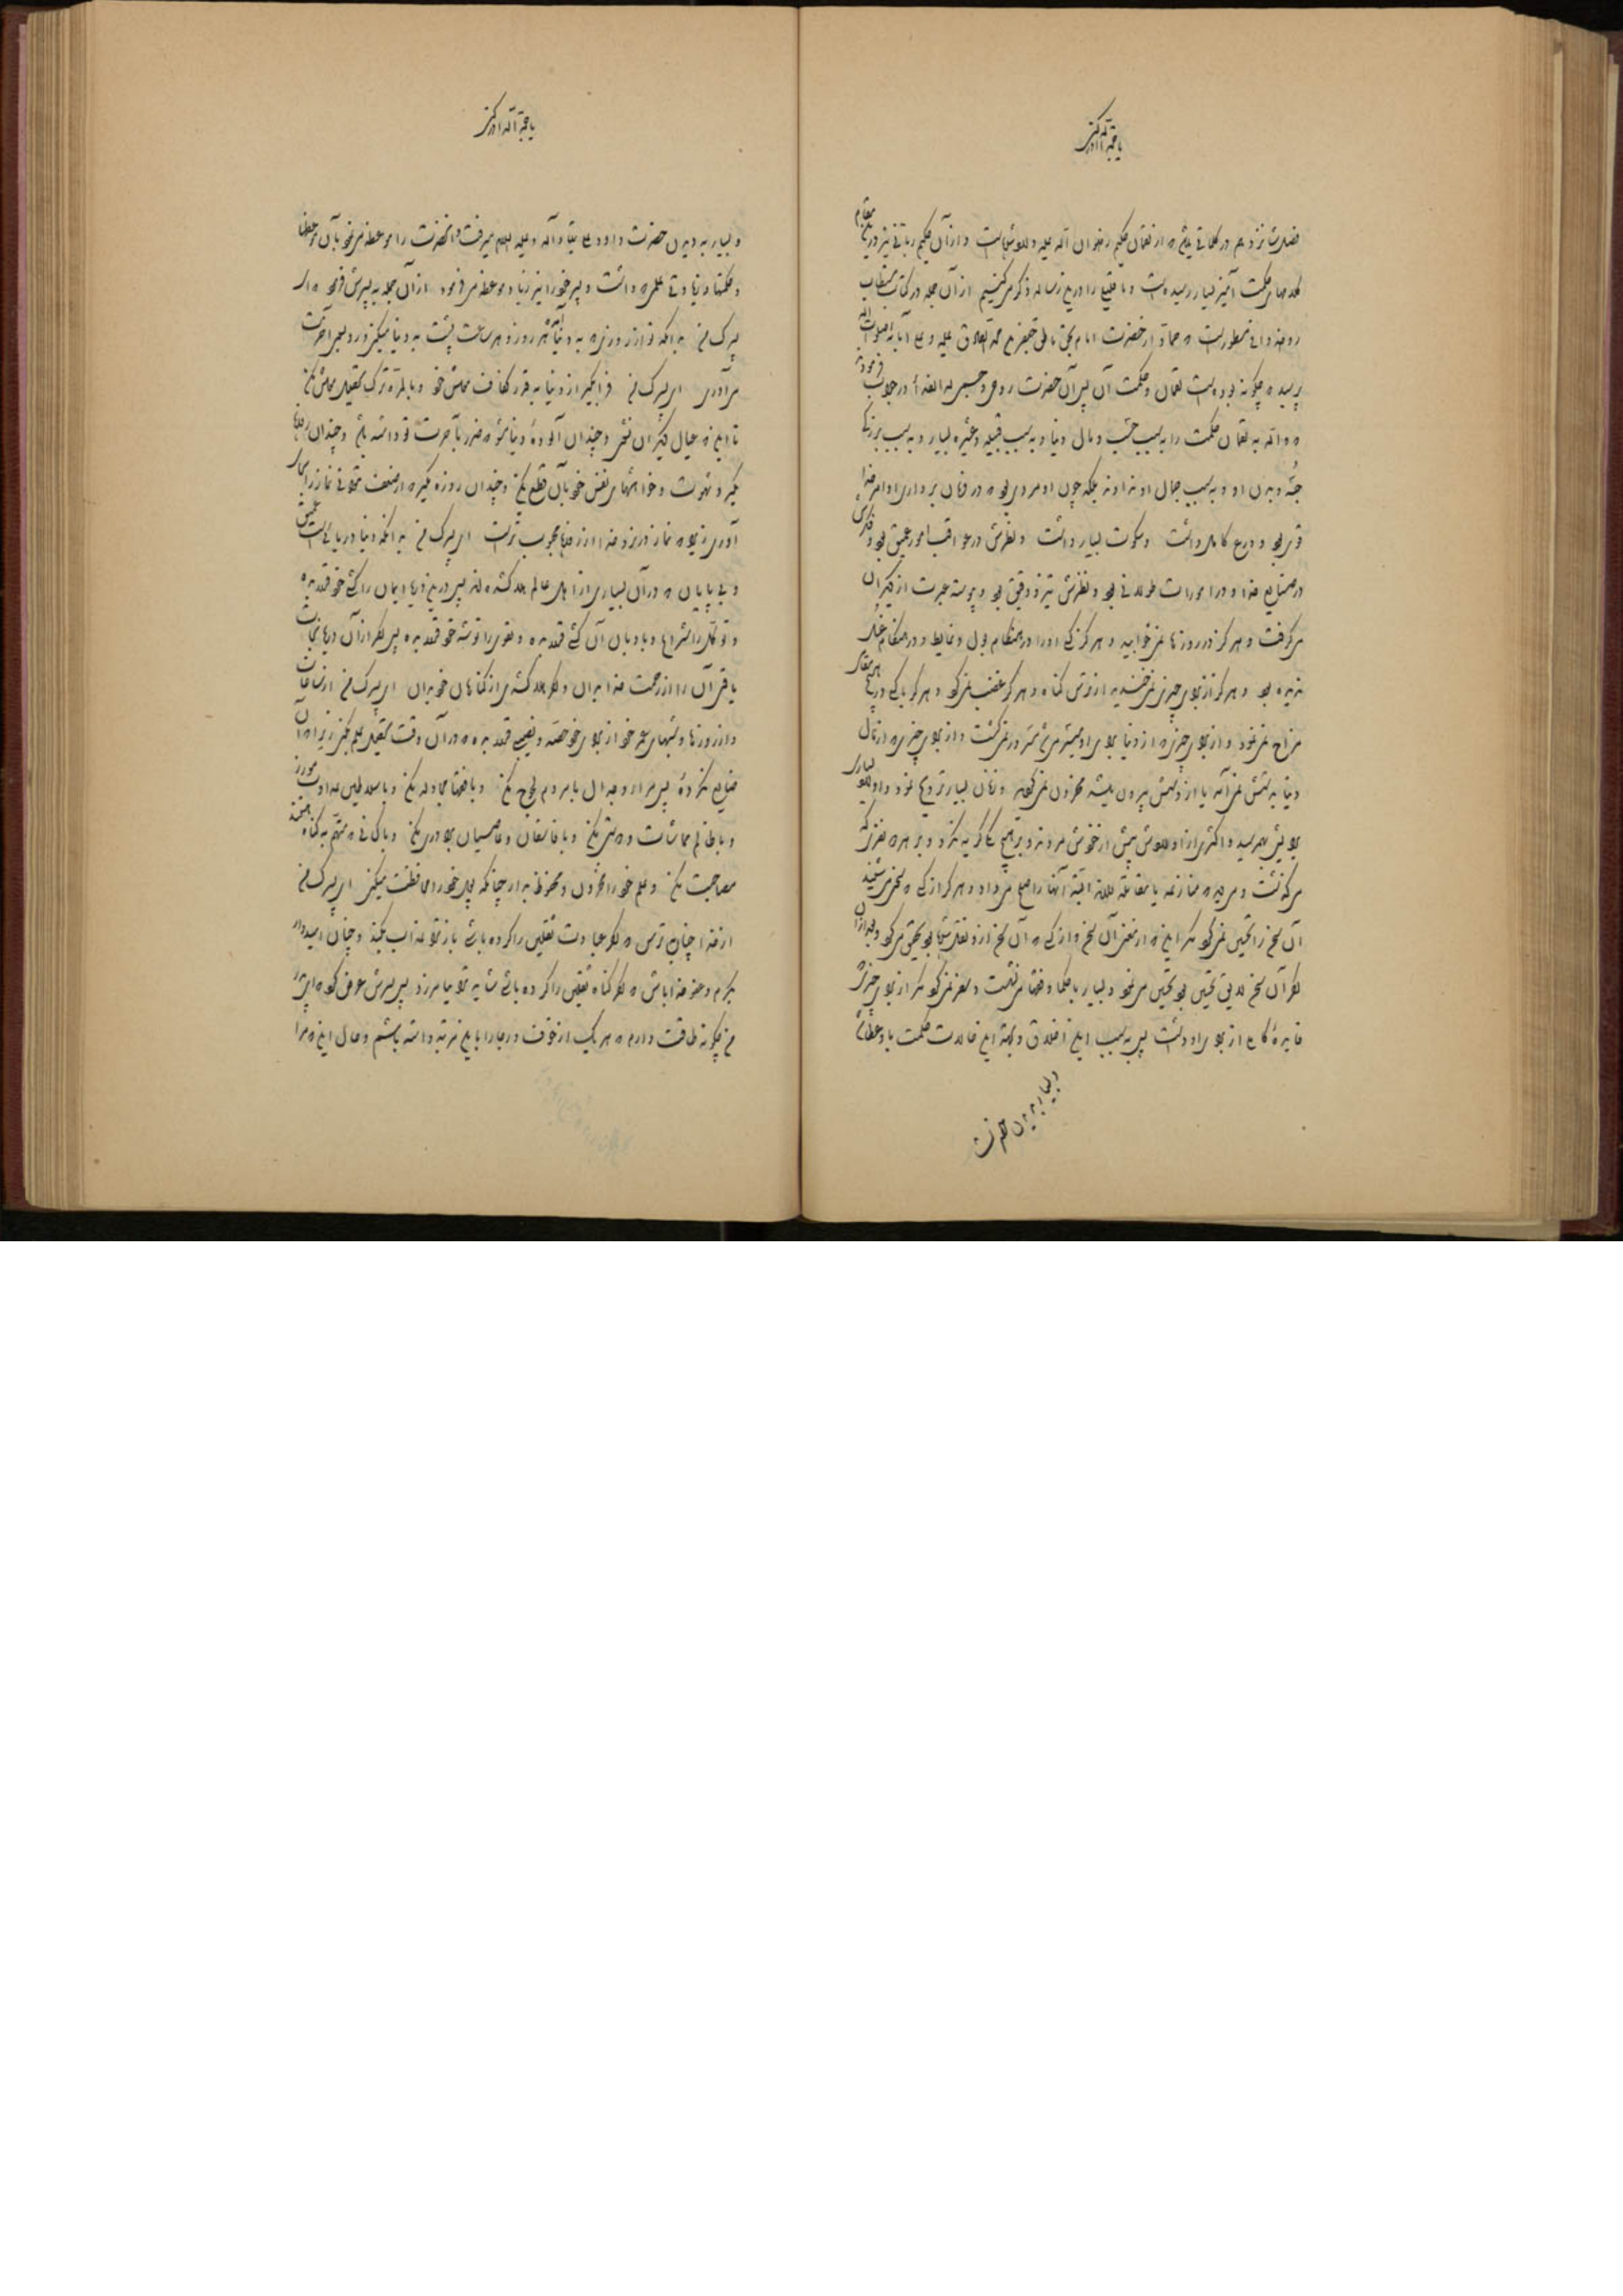 یا حجة الله ادرکنی
فصل شانزدهم در کلماتی چند که از لقمان حکیم رضوان الله علیه و للوشمالیست و از آن حکیم ربانی نیز در این مقام
کلامهای حکمت آمیز بسیار رسیده است و ما قلیلی را در این رساله ذکر میکنیم از آن جمله در کتاب مستطاب
روضه وافی مسطور است که حماد از حضرت امام بحق ناطق جعفر بن محمد الصادق علیه و علی آبائه صلوات الله
پرسید که چگونه بوده است لقمان و حکمت آن پس آن حضرت روحی و جسمی له الفداء در جواب فرمودند
که والله به لقمان حکمت را به سبب حسب و مال دنیا و به سبب قبیله و عشیره بسیار و به سبب بزرگی
جثه و بدن او و به سبب جمال او نداده اند بلکه چون او مردی بود که در فرمان برداری اوامر خدا
قوی بود و ورع کامل داشت و سکوت بسیار داشت و نظرش در عواقب امور عمیق بود و فکرش
در صنایع خدا و در امورات طولانی بود و نظرش تیز و دقیق بود و پیوسته عبرت از دیگران
میگرفت و هرگز در روزها نمی خوابید و هرگز کسی او را در هنگام بول و غایط و در هنگام غسل
ندیده بود و هرگز از برای چیزی نمی خندید از ترس گناه و هرگز غضب نمی کرد و هرگز با کسی در هیچ مقامی
مزاح نمی نمود و از برای چیزی که از دنیا برای او میسر می شد مسرور نمی گشت و از برای چیزی که از مال
دنیا به دستش نمی آمد یا از دستش بیرون میشد محزون نمی گردید و زنان بسیار تزویج نمود و اولاد بسیاری
برایش بهم رسید و اکثری از اولادش پیش از خودش مردند و بر هیچ یک گریه نکرد و بر هر دو نفری که
میگذشت و میدید که منازعه یا مقاتله دارند البته آنها را صلح می داد و هرگز از کسی که سخن می شنید
آن سخن را تحسین نمی کرد مگر این که از معنی آن سخن و از کسی که آن سخن از او نقل شده بود تحقیق میکرد و بعد از آن
اگر آن سخن لایق تحسین بود تحسین می نمود و بسیار با حکما و فقها می نشست و سفر نمی کرد مگر از برای چیزی که
فایده کامل از برای او داشت پس به سبب این اخلاق و بجهة این حالات حکمت باو عطا شد
و بسیار بدیدن حضرت
یا حجة الله ادرکنی
و بسیار به دیدن حضرت داود علی نبینا وآله و علیه السلام میرفت و آنحضرت را موعظه می نمود بآن موعظها
و حکمتها و زیادتی علمی که داشت و پسر خود را نیز زیاد موعظه می فرمود از آن جمله به پسرش فرمود که ای
پسرک من بدانکه تو از روزی که به دنیا آمده هر روز و هر ساعت پشت به دنیا میکنی و رو بسوی آخرت
می آوری ای پسرک من فرا بگیر از دنیا به قدر کفاف معاش خود و بالمره ترک تحصیل معاش مکن
تا این که عیال دیگران نشوی و چندان آلوده دنیا مشو که ضرر بآخرت تو داشته باشد و چندان روزه
بگیر که شهوت و خواهشهای نفس خود بآن قطع کنی و چندان روزه مگیر که از ضعف نتوانی نماز را بجا
آوری زیرا که نماز در نزد خدا از روزه محبوب تر است ای پسرک من بدانکه دنیا دریائی است عمیق
و بی پایان که در آن بسیاری از اهل عالم هلاک شده اند پس در این دریا ایمان را کشتی خود قرار بده
و توکل را شراع و بادبان آن کشتی قرار بده و تقوی را توشه خود قرار بده پس اگر از آن دریا نجات
یافتی آن را از رحمت خدا بدان و اگر هلاک شدی از گناهان خود بدان ای پسرک من از ساعات
و از روزها و شبهای عمر خود از برای خود حصه و نصیبی قرار بده که در آن وقت تحصیل علم بکنی زیرا که آن
ضایع نکرده پس مراء و جدال با مردم لجوج مکن و با فقها مجادله مکن و با سلاطین عداوت مورز
و با ظالم مماشات و دوستی مکن و با فاسقان و عاصیان برادری مکن و با کسانی که متهم به گناه هستند
مصاحبت مکن و علم خود را مخزون و محفوظ بدار چنانکه پول خود را محافظت میکنی ای پسرک من
از خدا چنان بترس که اگر عبادت ثقلین را کرده باشی باز ترا عذاب بکند و چنان امیدوار
بکرم و عفو خدا باش که اگر گناه ثقلین را کرده باشی شاید ترا بیامرزد پس پسرش عرض کرد که ای پدر
من چگونه طاقت دارم که هر یک از خوف و رجا را باین مرتبه داشته باشم و حال این که مرا